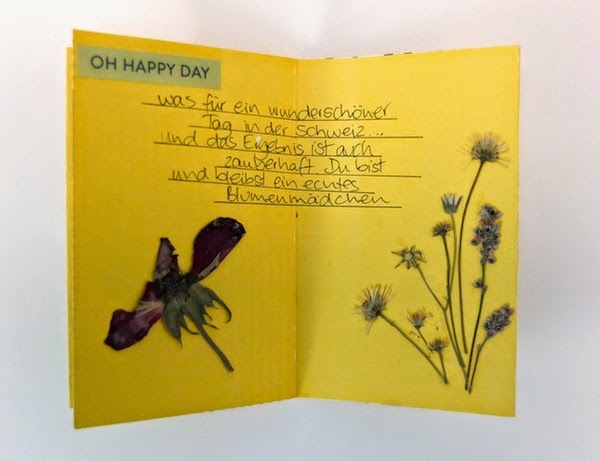 OH HAPPY DAY
was für ein wunderschöner
Tag in der Schweiz...
und das Ergebnis ist auch
zauberhaft. Du bist
und bleibst ein echtes
Blumenmädchen